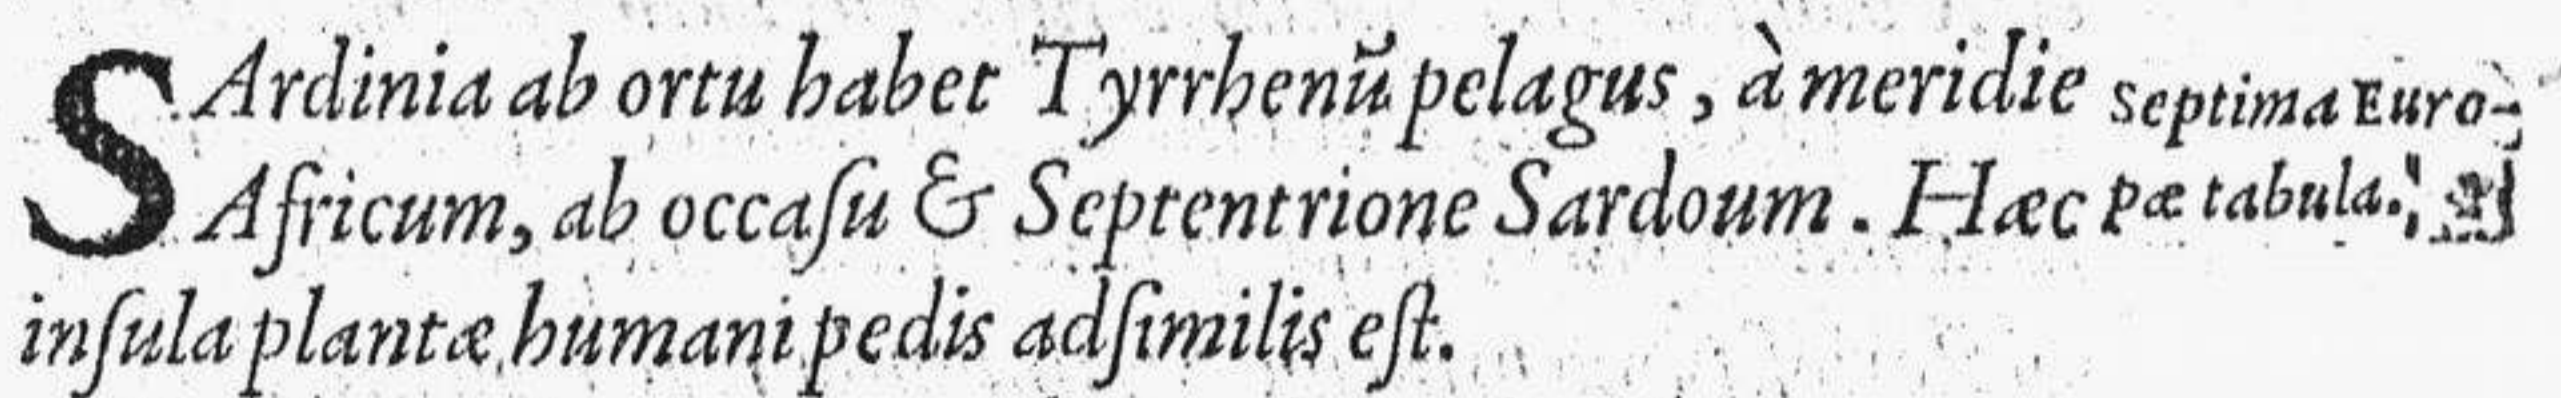 SArdinia ab ortu habet Tyrrhenũ pelagus, à meridie
Africum, ab occaſu & Septentrione Sardoum. Hæc
inſula plantæ humani pedis adſimilis eſt.
Septima Euro-
pæ tabula.